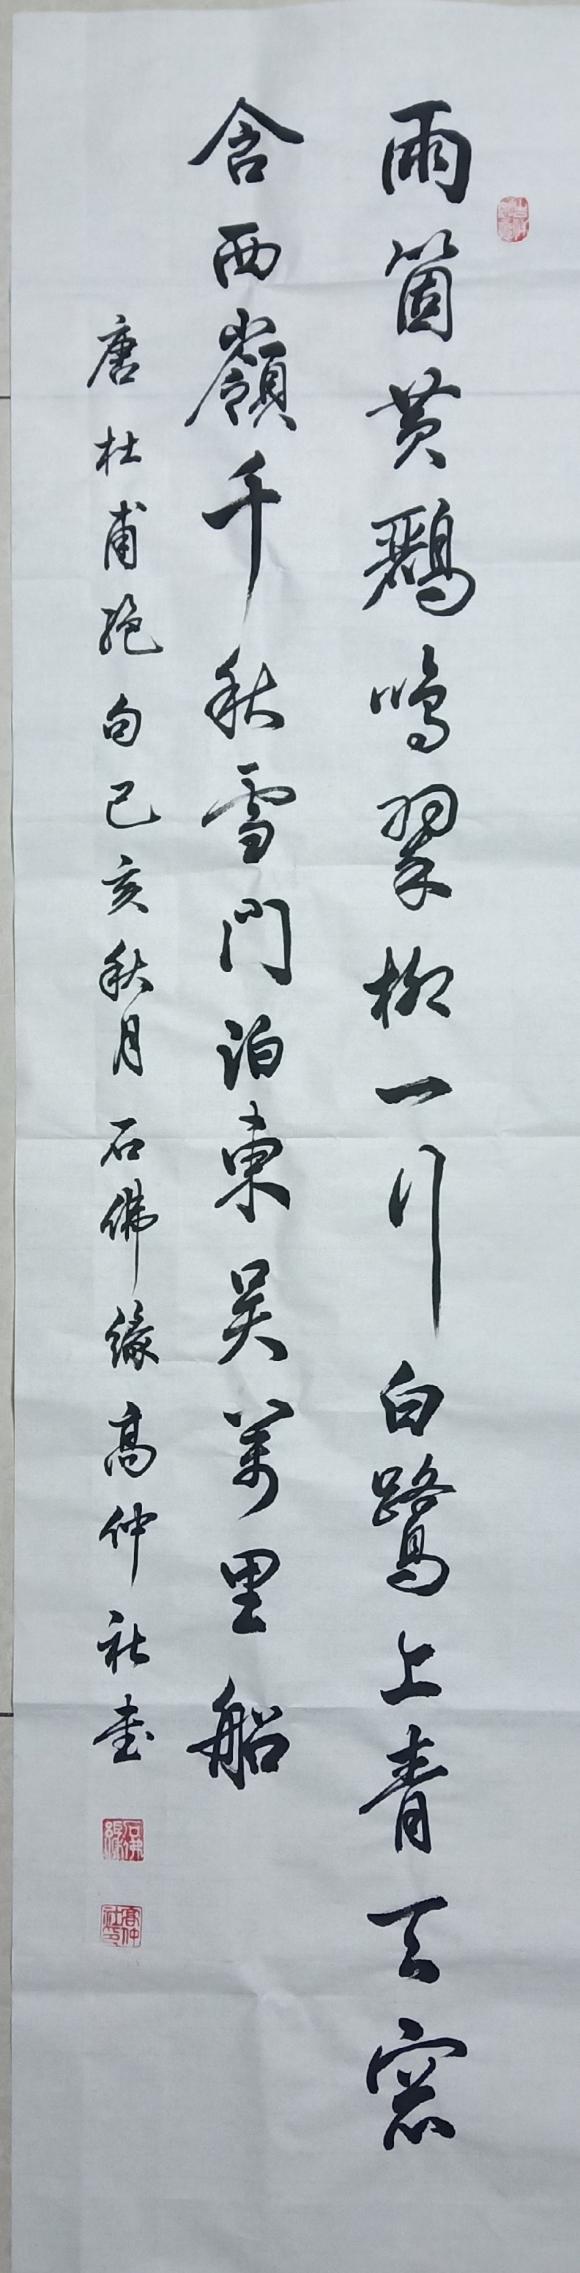 兩箇黃鸝鳴翠柳一行白鷺上青天窓
含西嶺千秋雪門泊東吳萬里船
唐杜甫絕句己亥秋月石佛緣高仲社書
石佛緣
高仲社印